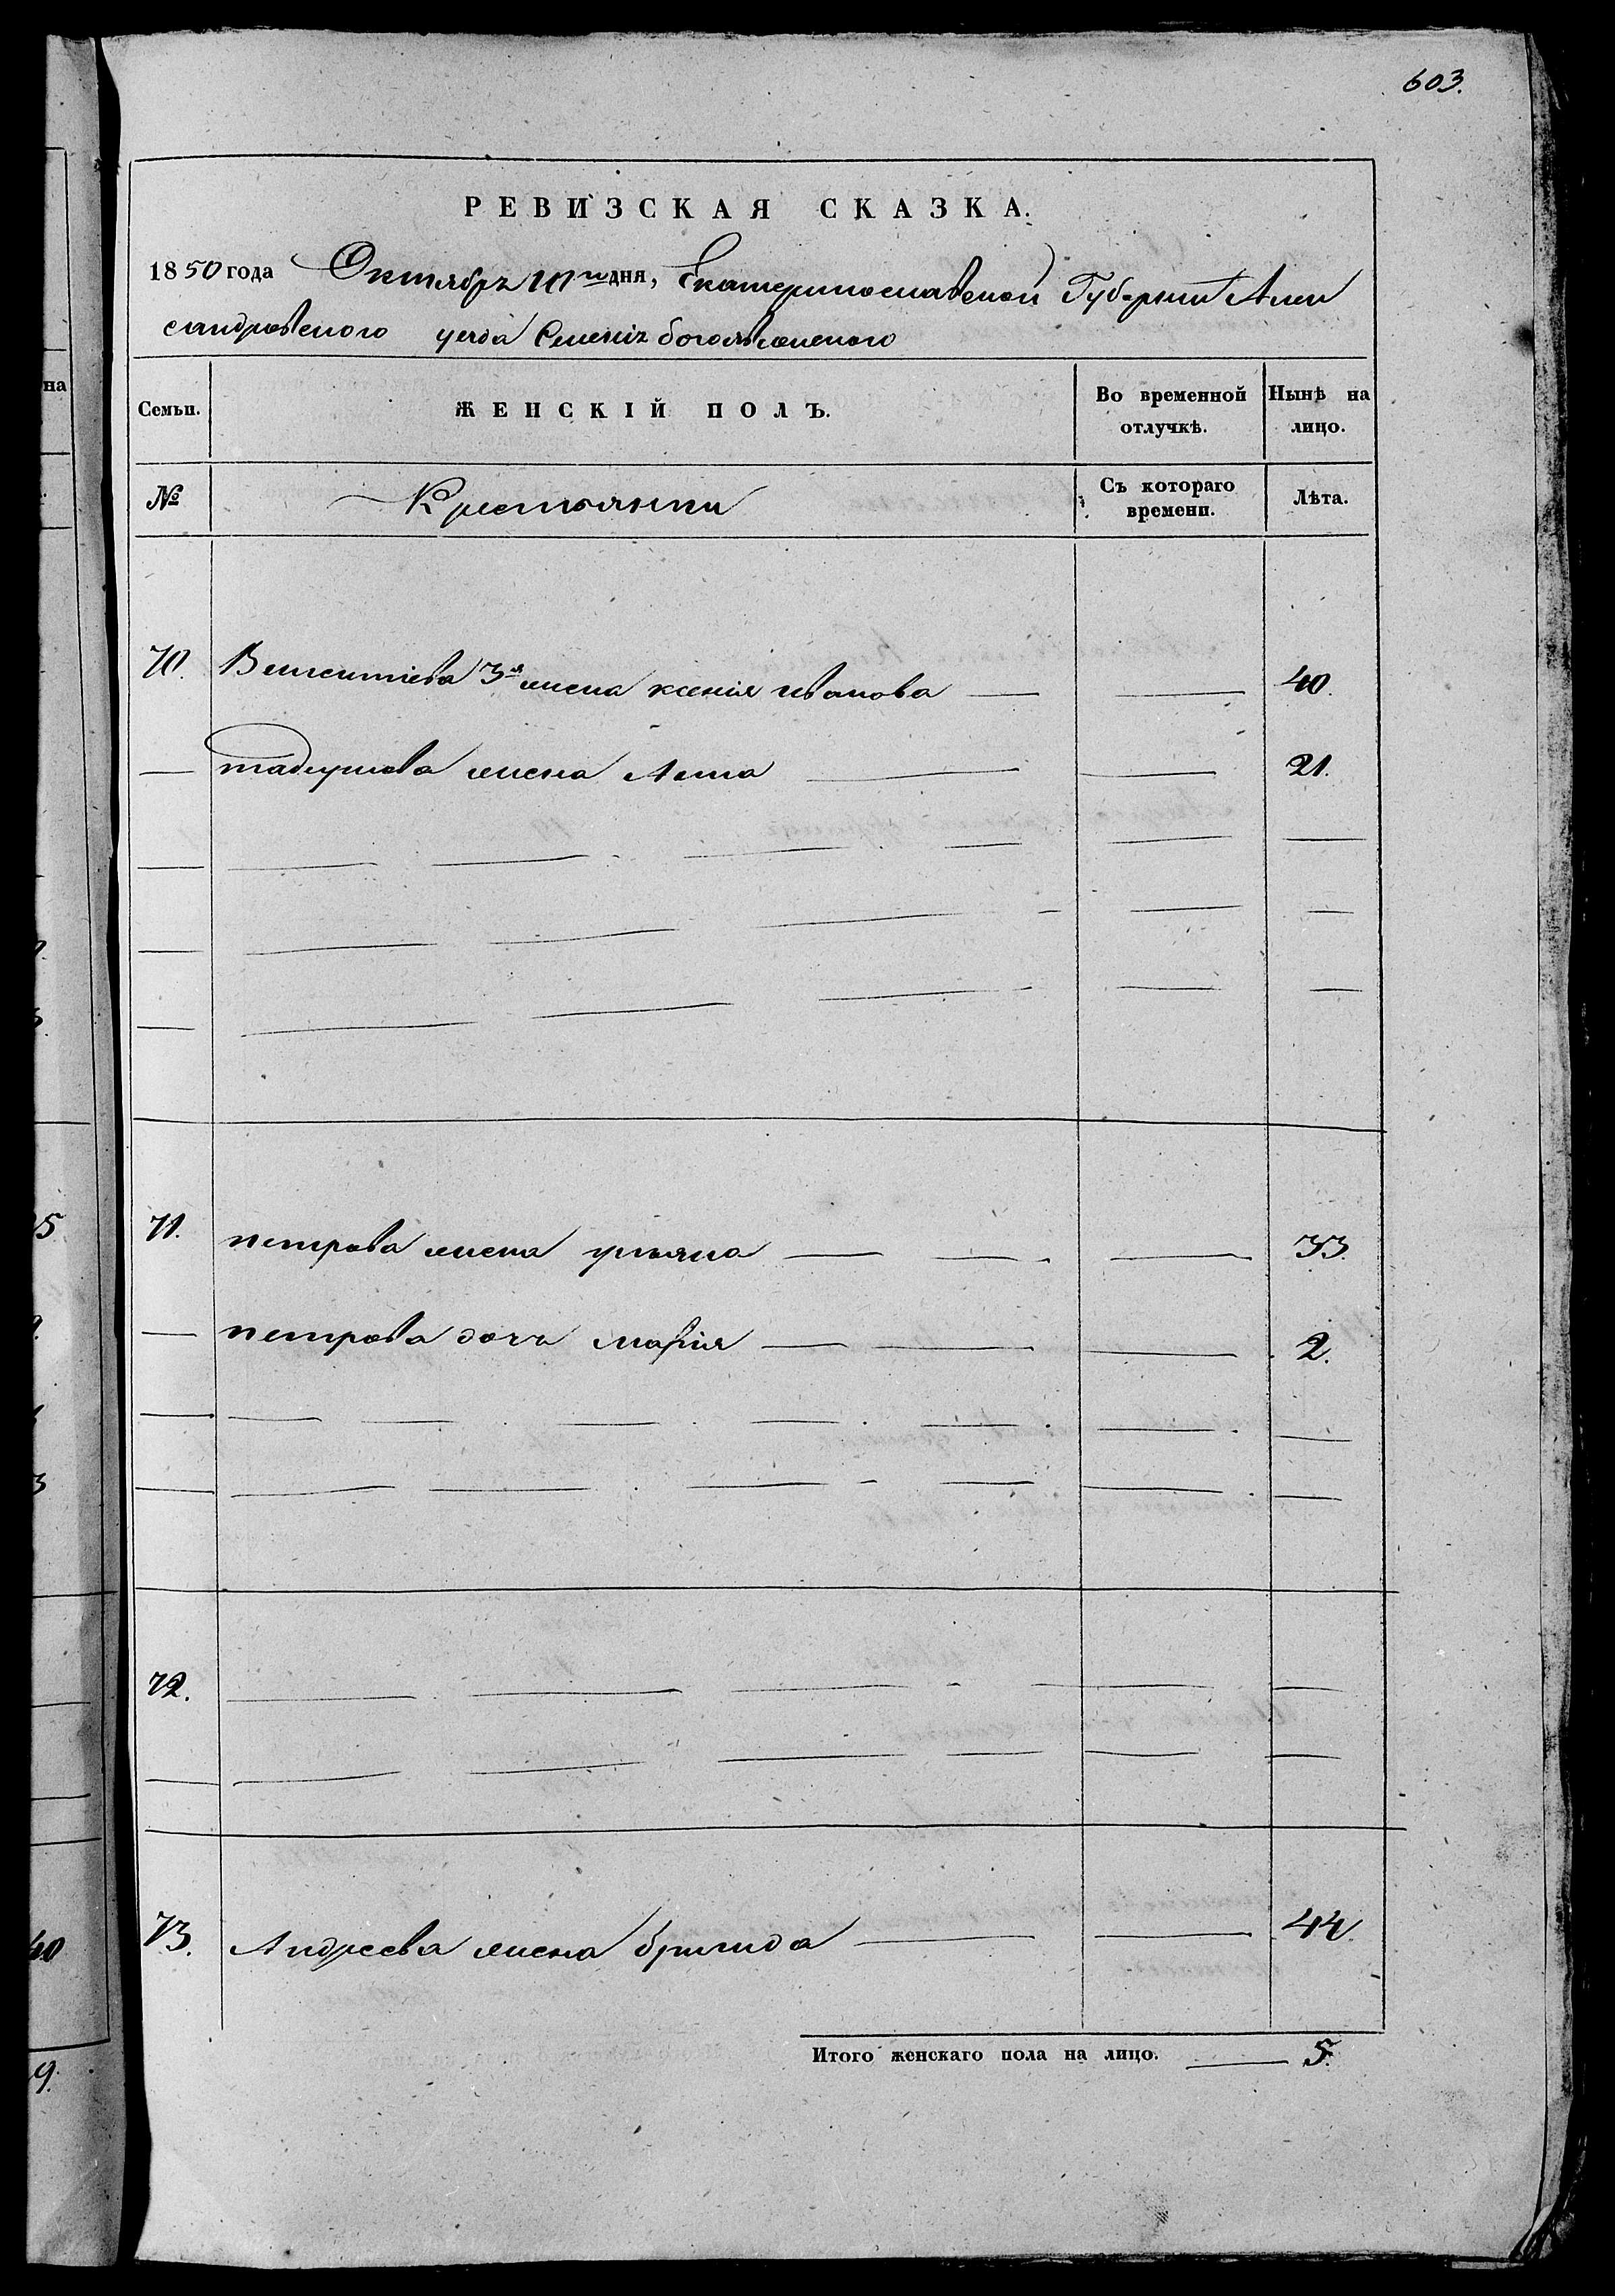 603.
РЕВИЗСКАЯ СКАЗКА.
1850 года Октября 10го дня, Екатеринославской Губернии Алек
сандровского уезда Селенія богоявленского
на
Семьи. ЖЕНСКІЙ ПОЛЪ. Во временной отлучкѣ. Нынѣ на лицо.
№ Крестьянки Съ котораго времени. Лѣта.
70. Викентіева 3я жена ксенія иванова 40.
тадеушова жена Анна 21.
71. петрова жена ульяна 33.
петрова дочь марія 2.
72.
73. Андреева жена бригида 44.
Итого женскаго пола на лицо. 5.
5
3
40
9.